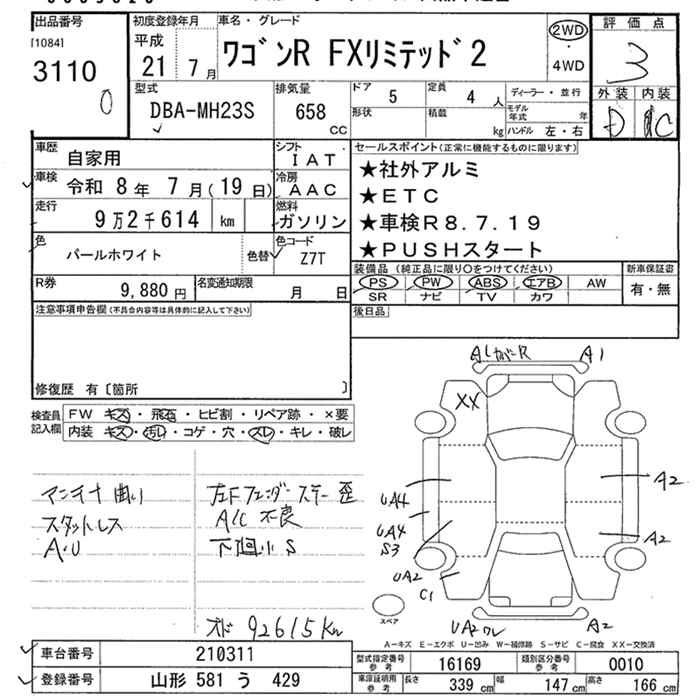 出品番号
[1084]
3110
0
初度登録年月
平成
21 7 月
車名・グレード
ワゴンR FXリミテッド2
2WD
4WD
評価点
3
外装 内装
D C
型式
DBA-MH23S
排気量
658
CC
ドア
5
形状
定員
4 人
積載
kg
ディーラー・並行
モデル年式 年
ハンドル 左・右
車歴
自家用
シフト
IAT
車検
令和 8年 7月(19日)
冷房
AAC
走行
9万2千614 km
燃料
ガソリン
色
パールホワイト
色替
色コード
Z7T
R券
9,880 円
名変通知期限
月 日
セールスポイント(正常に機能するものに限ります)
★社外アルミ
★ETC
★車検R8.7.19
★PUSHスタート
装備品 (純正品に限り○をつけてください)
PS PW ABS エアB AW
SR ナビ TV カワ
新車保証書
有・無
後日品
注意事項申告欄(不具合内容等は具体的に記入して下さい)
修復歴 有〔箇所 〕
検査員記入欄
FW キズ・飛石・ヒビ割・リペア跡・×要
内装 キズ・汚れ・コゲ・穴・スレ・キレ・破レ
アンテナ曲り
スタットレス
A.U
左Fフェンダーステー歪
A/C不良
下廻小S
オド 92615Km
A1
XX
UA4
UA4
S3
UA2
C1
A2
A2
A2
スペア
A-キズ E-エクボ U-凹み W-補修跡 S-サビ C-腐食 XX-交換済
車台番号
210311
登録番号
山形 581 う 429
型式指定番号
参考
16169
類別区分番号
参考
0010
車庫証明用
参考
長さ
339 cm
幅
147 cm
高さ
166 cm